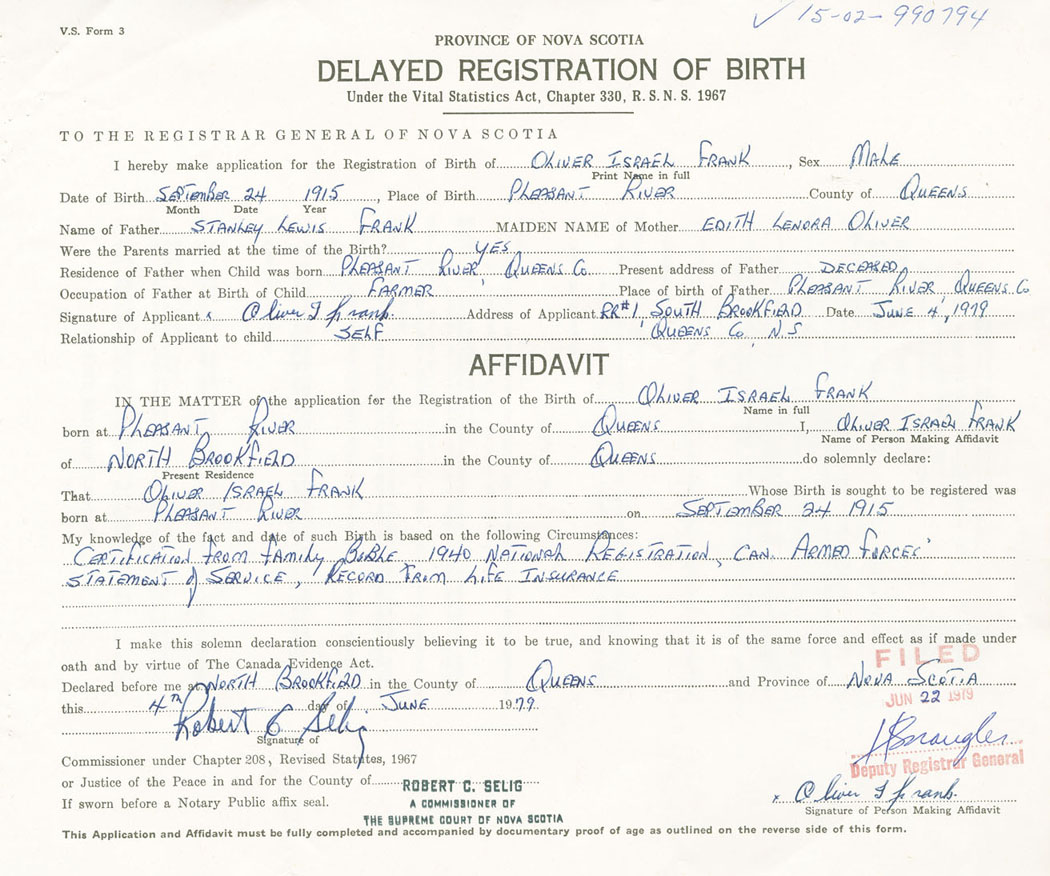 V.S. Form 3
✓ 15-02-990794
PROVINCE OF NOVA SCOTIA
DELAYED REGISTRATION OF BIRTH
Under the Vital Statistics Act, Chapter 330, R. S. N. S. 1967
TO THE REGISTRAR GENERAL OF NOVA SCOTIA
I hereby make application for the Registration of Birth of OLIVER ISRAEL FRANK, Sex MALE
Print Name in full
Date of Birth SEPTEMBER 24 1915, Place of Birth PLEASANT RIVER County of QUEENS
Month Date Year
Name of Father STANLEY LEWIS FRANK MAIDEN NAME of Mother EDITH LENORA OLIVER
Were the Parents married at the time of the Birth? YES
Residence of Father when Child was born PLEASANT RIVER, QUEENS Co. Present address of Father DECEASED
Occupation of Father at Birth of Child FARMER Place of birth of Father PLEASANT RIVER, QUEENS Co
Signature of Applicant x Oliver I Frank. Address of Applicant RR#1, SOUTH BROOKFIELD Date JUNE 4, 1979
Relationship of Applicant to child SELF QUEENS Co, N.S
AFFIDAVIT
IN THE MATTER of the application for the Registration of the Birth of OLIVER ISRAEL FRANK
Name in full
born at PLEASANT RIVER in the County of QUEENS I, OLIVER ISRAEL FRANK
Name of Person Making Affidavit
of NORTH BROOKFIELD in the County of QUEENS do solemnly declare:
Present Residence
That OLIVER ISRAEL FRANK Whose Birth is sought to be registered was
born at PLEASANT RIVER on SEPTEMBER 24 1915
My knowledge of the fact and date of such Birth is based on the following Circumstances:
CERTIFICATION FROM FAMILY BIBLE, 1940 NATIONAL REGISTRATION, CAN. ARMED FORCES'
STATEMENT of SERVICE, RECORD FROM LIFE INSURANCE
I make this solemn declaration conscientiously believing it to be true, and knowing that it is of the same force and effect as if made under
oath and by virtue of The Canada Evidence Act.
FILED
Declared before me at NORTH BROOKFIELD in the County of QUEENS and Province of NOVA SCOTIA
JUN 22 1979
this 4th day of JUNE 1979
Robert C Selig
Signature of
Commissioner under Chapter 208, Revised Statutes, 1967
Deputy Registrar General
or Justice of the Peace in and for the County of ROBERT C. SELIG
If sworn before a Notary Public affix seal. A COMMISSIONER OF
x Oliver I Frank.
Signature of Person Making Affidavit
THE SUPREME COURT OF NOVA SCOTIA
This Application and Affidavit must be fully completed and accompanied by documentary proof of age as outlined on the reverse side of this form.